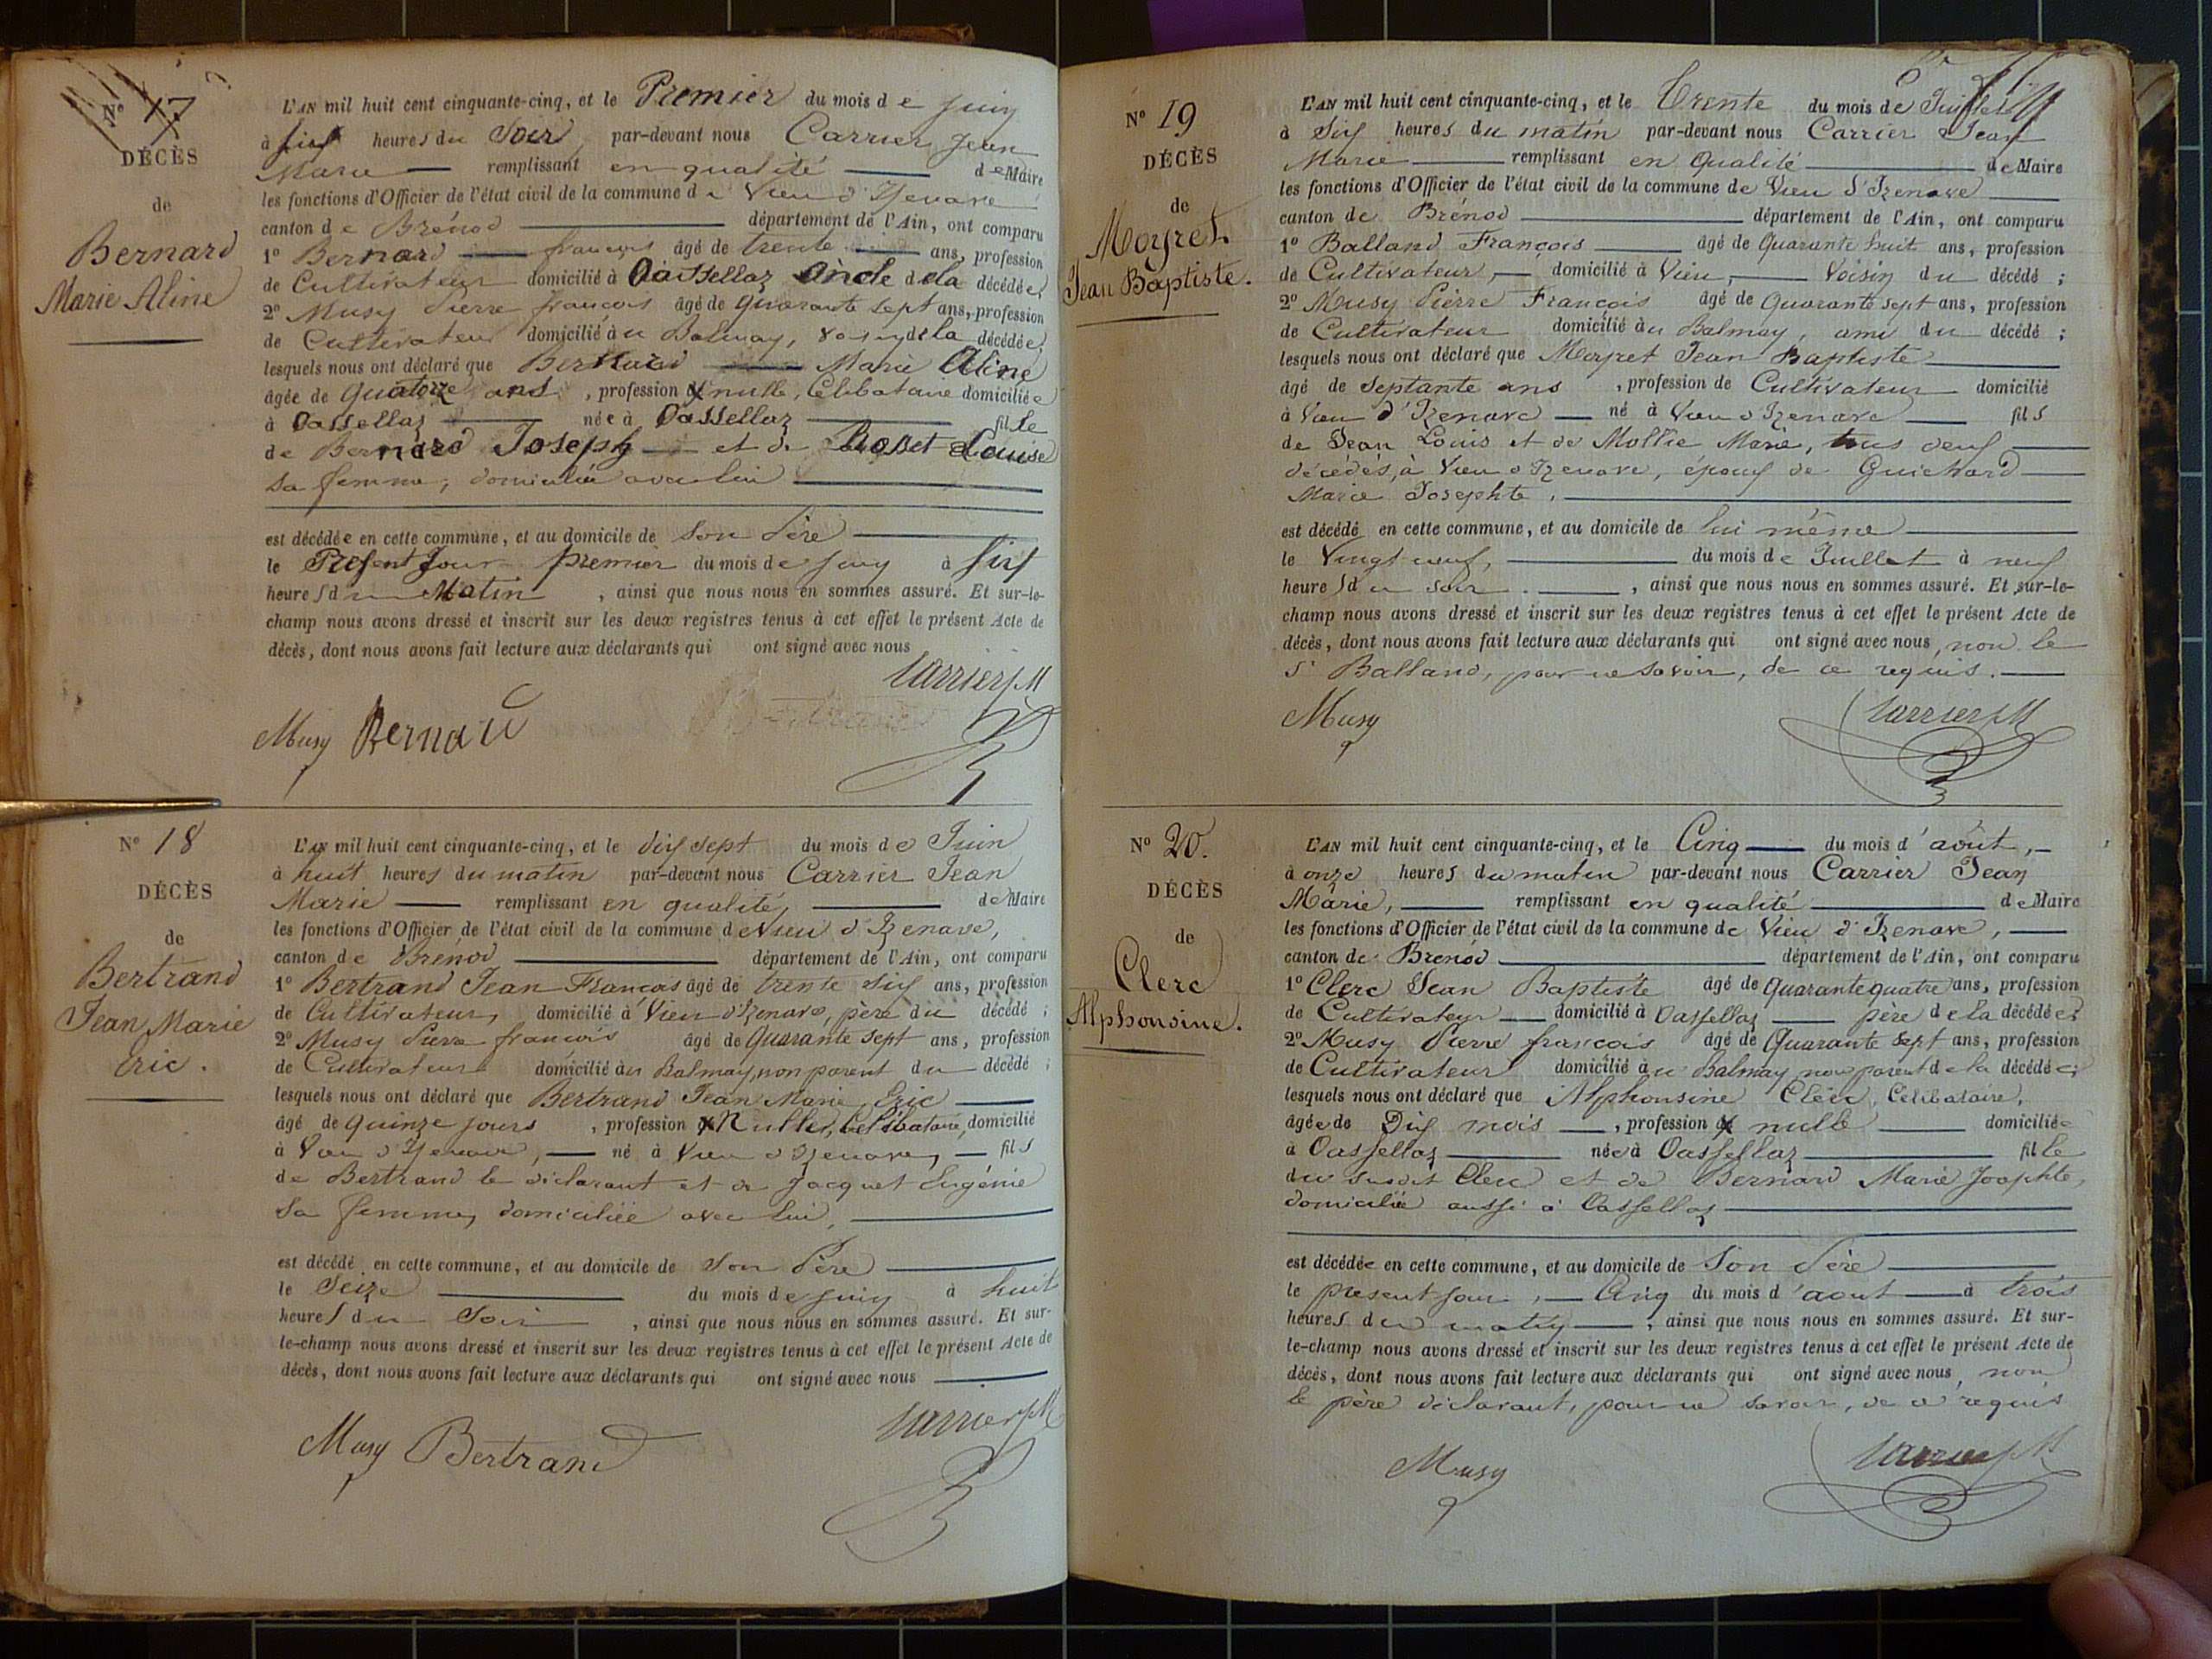 N° 17
DÉCÈS
de
Bernard
Marie Aline
L'AN mil huit cent cinquante-cinq, et le Premier du mois de juin
à six heures du Soir par-devant nous Carrier Jean
Marie remplissant en qualité de Maire
les fonctions d'Officier de l'état civil de la commune de Vieu d'Izenave
canton de Brénod département de l'Ain, ont comparu
1° Bernard françois âgé de trente ans, profession
de Cultivateur domicilié à Oassellaz oncle de la décédée
2° Musy Pierre françois âgé de quarante sept ans, profession
de Cultivateur domicilié au Balmay, voisin de la décédée,
lesquels nous ont déclaré que Bernard Marie Aline
âgée de Quatorze ans, profession nulle, Célibataire domiciliée
à Oassellaz née à Oassellaz fille
de Bernard Joseph et de Louise
sa femme, domiciliée avec lui
est décédée en cette commune, et au domicile de son Père
le Présent Jour premier du mois de juin à six
heures du Matin, ainsi que nous nous en sommes assuré. Et sur-le-
champ nous avons dressé et inscrit sur les deux registres tenus à cet effet le présent Acte de
décès, dont nous avons fait lecture aux déclarants qui ont signé avec nous
Carrier J M
Musy Bernard
N° 18
DÉCÈS
de
Bertrand
Jean Marie
Eric.
L'AN mil huit cent cinquante-cinq, et le dix sept du mois de Juin
à huit heures du matin par-devant nous Carrier Jean
Marie remplissant en qualité, de Maire
les fonctions d'Officier de l'état civil de la commune de Vieu d'Izenave,
canton de Brénod département de l'Ain, ont comparu
1° Bertrand Jean François âgé de trente six ans, profession
de Cultivateur, domicilié à Vieu d'Izenave, père du décédé ;
2° Musy Pierre françois âgé de Quarante sept ans, profession
de Cultivateur domicilié au Balmay, non parent du décédé ;
lesquels nous ont déclaré que Bertrand Jean Marie Eric
âgé de quinze jours, profession Nulle, Célibataire, domicilié
à Vieu d'Izenave, né à Vieu d'Izenave, fils
de Bertrand le déclarant et de Jacquet Eugénie
sa femme, domiciliée avec lui,
est décédé en cette commune, et au domicile de son Père
le Seize du mois de juin à huit
heures du Soir, ainsi que nous nous en sommes assuré. Et sur-
le-champ nous avons dressé et inscrit sur les deux registres tenus à cet effet le présent Acte de
décès, dont nous avons fait lecture aux déclarants qui ont signé avec nous
Carrier J M
Musy Bertrand
N° 19
DÉCÈS
de
Moyret
Jean Baptiste.
L'AN mil huit cent cinquante-cinq, et le Trente du mois de Juillet
à Six heures du matin par-devant nous Carrier Jean
Marie remplissant en Qualité de Maire
les fonctions d'Officier de l'état civil de la commune de Vieu d'Izenave
canton de Brénod département de l'Ain, ont comparu
1° Balland François âgé de Quarante huit ans, profession
de Cultivateur, domicilié à Vieu, Voisin du décédé ;
2° Musy Pierre François âgé de Quarante sept ans, profession
de Cultivateur domicilié au Balmay, ami du décédé ;
lesquels nous ont déclaré que Moyret Jean Baptiste
âgé de Septante ans, profession de Cultivateur domicilié
à Vieu d'Izenave né à Vieu d'Izenave fils
de Jean Louis et de Mollie Marie, tous deux
décédés, à Vieu d'Izenave, époux de Guichard
Marie Josephte,
est décédé en cette commune, et au domicile de lui même
le Vingt neuf, du mois de Juillet à neuf
heures du soir, ainsi que nous nous en sommes assuré. Et sur-le-
champ nous avons dressé et inscrit sur les deux registres tenus à cet effet le présent Acte de
décès, dont nous avons fait lecture aux déclarants qui ont signé avec nous, non le
Sr Balland, pour ne savoir, de ce requis.
Musy Carrier J M
N° 20.
DÉCÈS
de
Clerc
Alphonsine.
L'AN mil huit cent cinquante-cinq, et le Cinq du mois d'août,
à onze heures du matin par-devant nous Carrier Jean
Marie, remplissant en qualité de Maire
les fonctions d'Officier de l'état civil de la commune de Vieu d'Izenave,
canton de Brénod département de l'Ain, ont comparu
1° Clerc Jean Baptiste âgé de Quarante quatre ans, profession
de Cultivateur domicilié à Oassellaz père de la décédée ;
2° Musy Pierre françois âgé de Quarante sept ans, profession
de Cultivateur domicilié au Balmay non parent de la décédée ;
lesquels nous ont déclaré que Alphonsine Clerc, Célibataire,
âgée de Dix mois, profession nulle domiciliée
à Oassellaz née à Oassellaz fille
du susdit Clerc et de Bernard Marie Josephte,
domiciliée aussi à Oassellaz
est décédée en cette commune, et au domicile de Son Père
le présent jour, Cinq du mois d'aout à trois
heures du matin, ainsi que nous nous en sommes assuré. Et sur-
le-champ nous avons dressé et inscrit sur les deux registres tenus à cet effet le présent Acte de
décès, dont nous avons fait lecture aux déclarants qui ont signé avec nous, non
le père déclarant, pour ne savoir, de ce requis
Musy Carrier J M